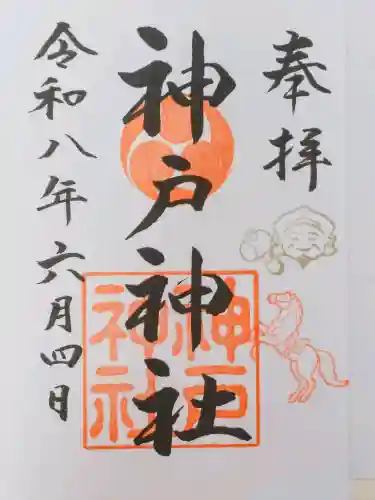 奉拝
神戸神社
神戸
神社
令和八年六月四日